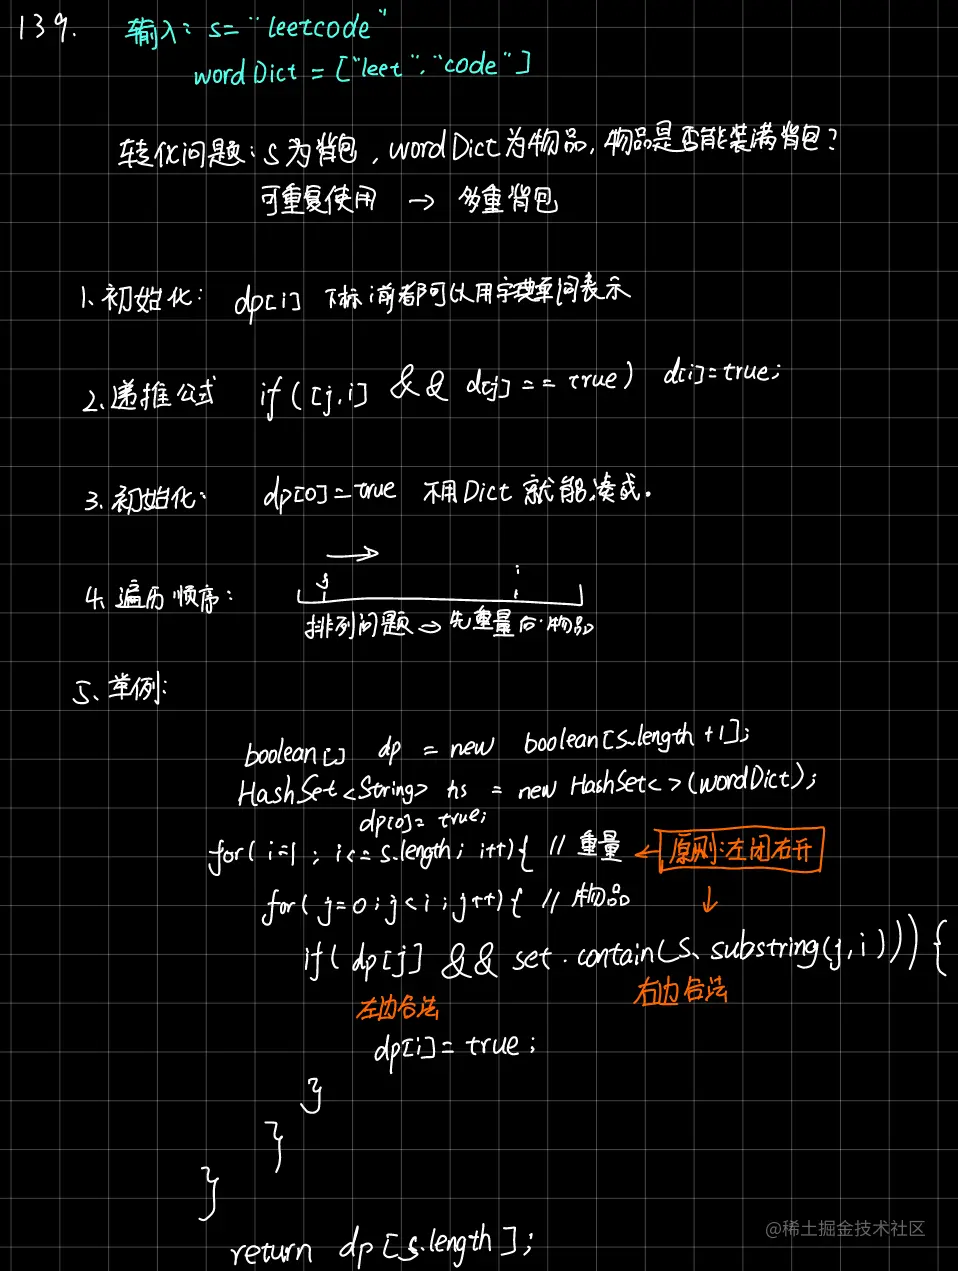 139. 输入: s= "leetcode"
wordDict = ["leet", "code"]
转化问题: s为背包, wordDict为物品, 物品是否能装满背包?
可重复使用 → 多重背包
1、初始化: dp[i] 下标i前都可以用字典单词表示
2、递推公式 if([j,i] && d[j] == true) d[i]=true;
3、初始化: dp[0]=true 不用Dict就能凑成.
4、遍历顺序: j → i
排列问题 ⇒ 先重量后物品
5、举例:
boolean[] dp = new boolean[s.length+1];
HashSet<String> hs = new HashSet<>(wordDict);
dp[0]= true;
for( i=1 ; i<= s.length; i++){ // 重量 ← 原则:左闭右开
for( j=0 ; j<i ; j++){ // 物品 ↓
if( dp[j] && set.contain(s.substring(j,i))){
左边合法 右边合法
dp[i]= true;
}
}
}
return dp[s.length];
@稀土掘金技术社区